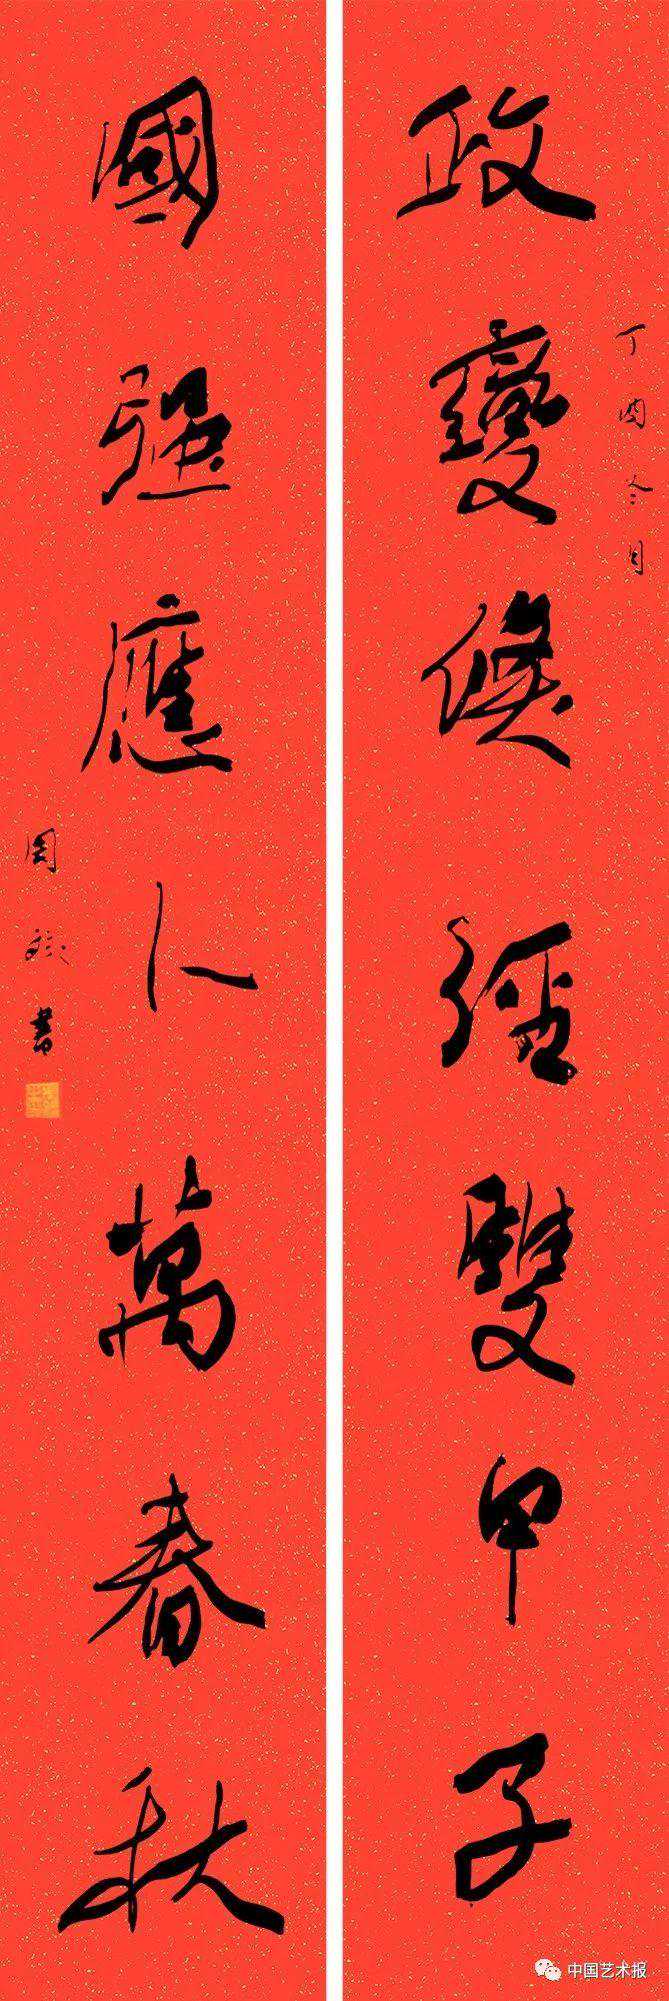 政變倏經雙甲子
丁酉冬月
國強應入萬春秋
書
中国艺术报